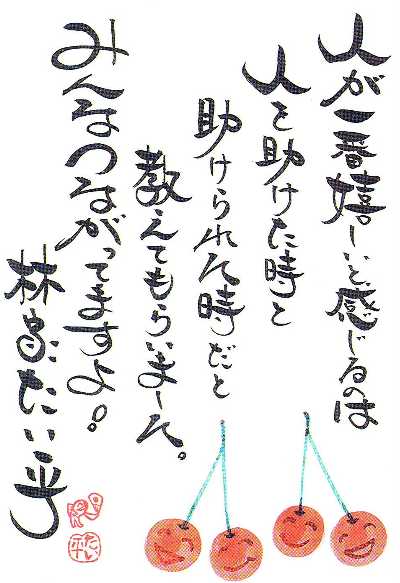 人が一番嬉しいと感じるのは
人を助けた時と
助けられた時だと
教えてもらいました。
みんなつながってますよ。
林家たい平